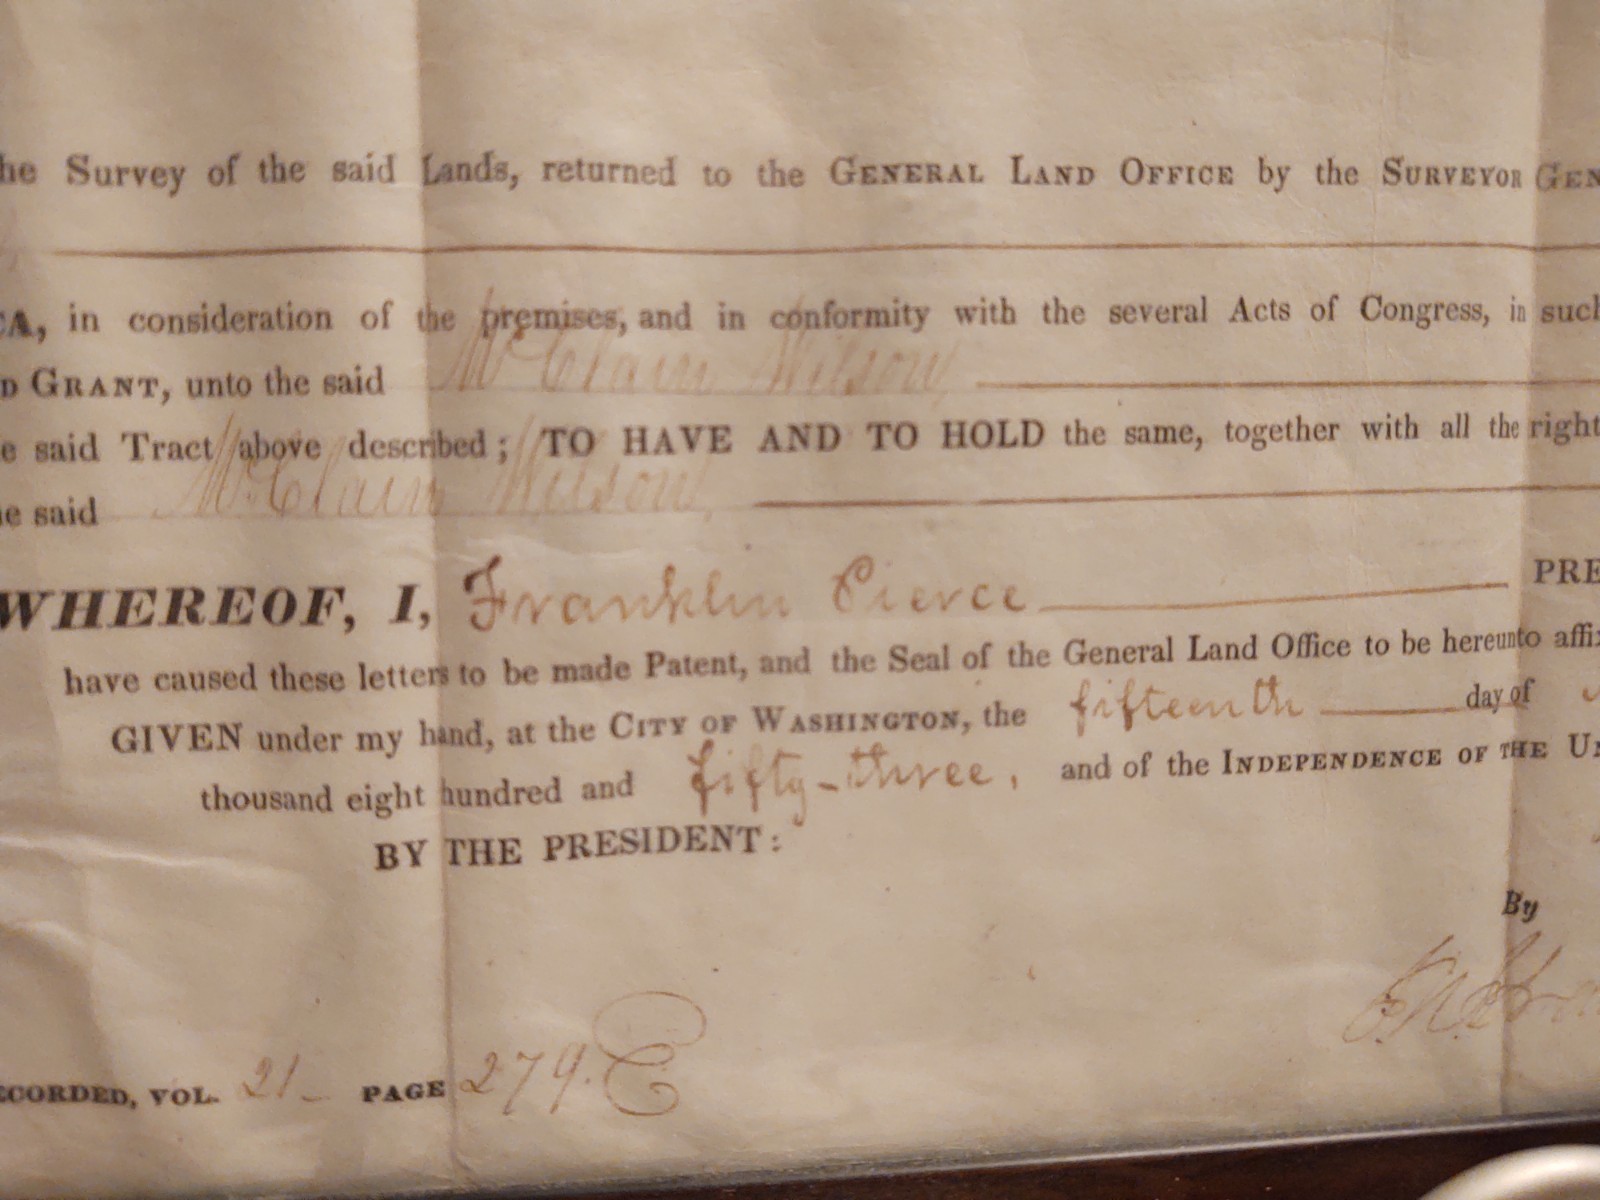 he Survey of the said Lands, returned to the GENERAL LAND OFFICE by the SURVEYOR GEN
CA, in consideration of the premises, and in conformity with the several Acts of Congress, in such
D GRANT, unto the said McClain Wilson,
e said Tract above described; TO HAVE AND TO HOLD the same, together with all the right
he said McClain Wilson,
WHEREOF, I, Franklin Pierce PRE
have caused these letters to be made Patent, and the Seal of the General Land Office to be hereunto affi
GIVEN under my hand, at the CITY OF WASHINGTON, the fifteenth day of
thousand eight hundred and fifty-three, and of the INDEPENDENCE OF THE Un
BY THE PRESIDENT:
By
ECORDED, VOL. 21 PAGE 279. E